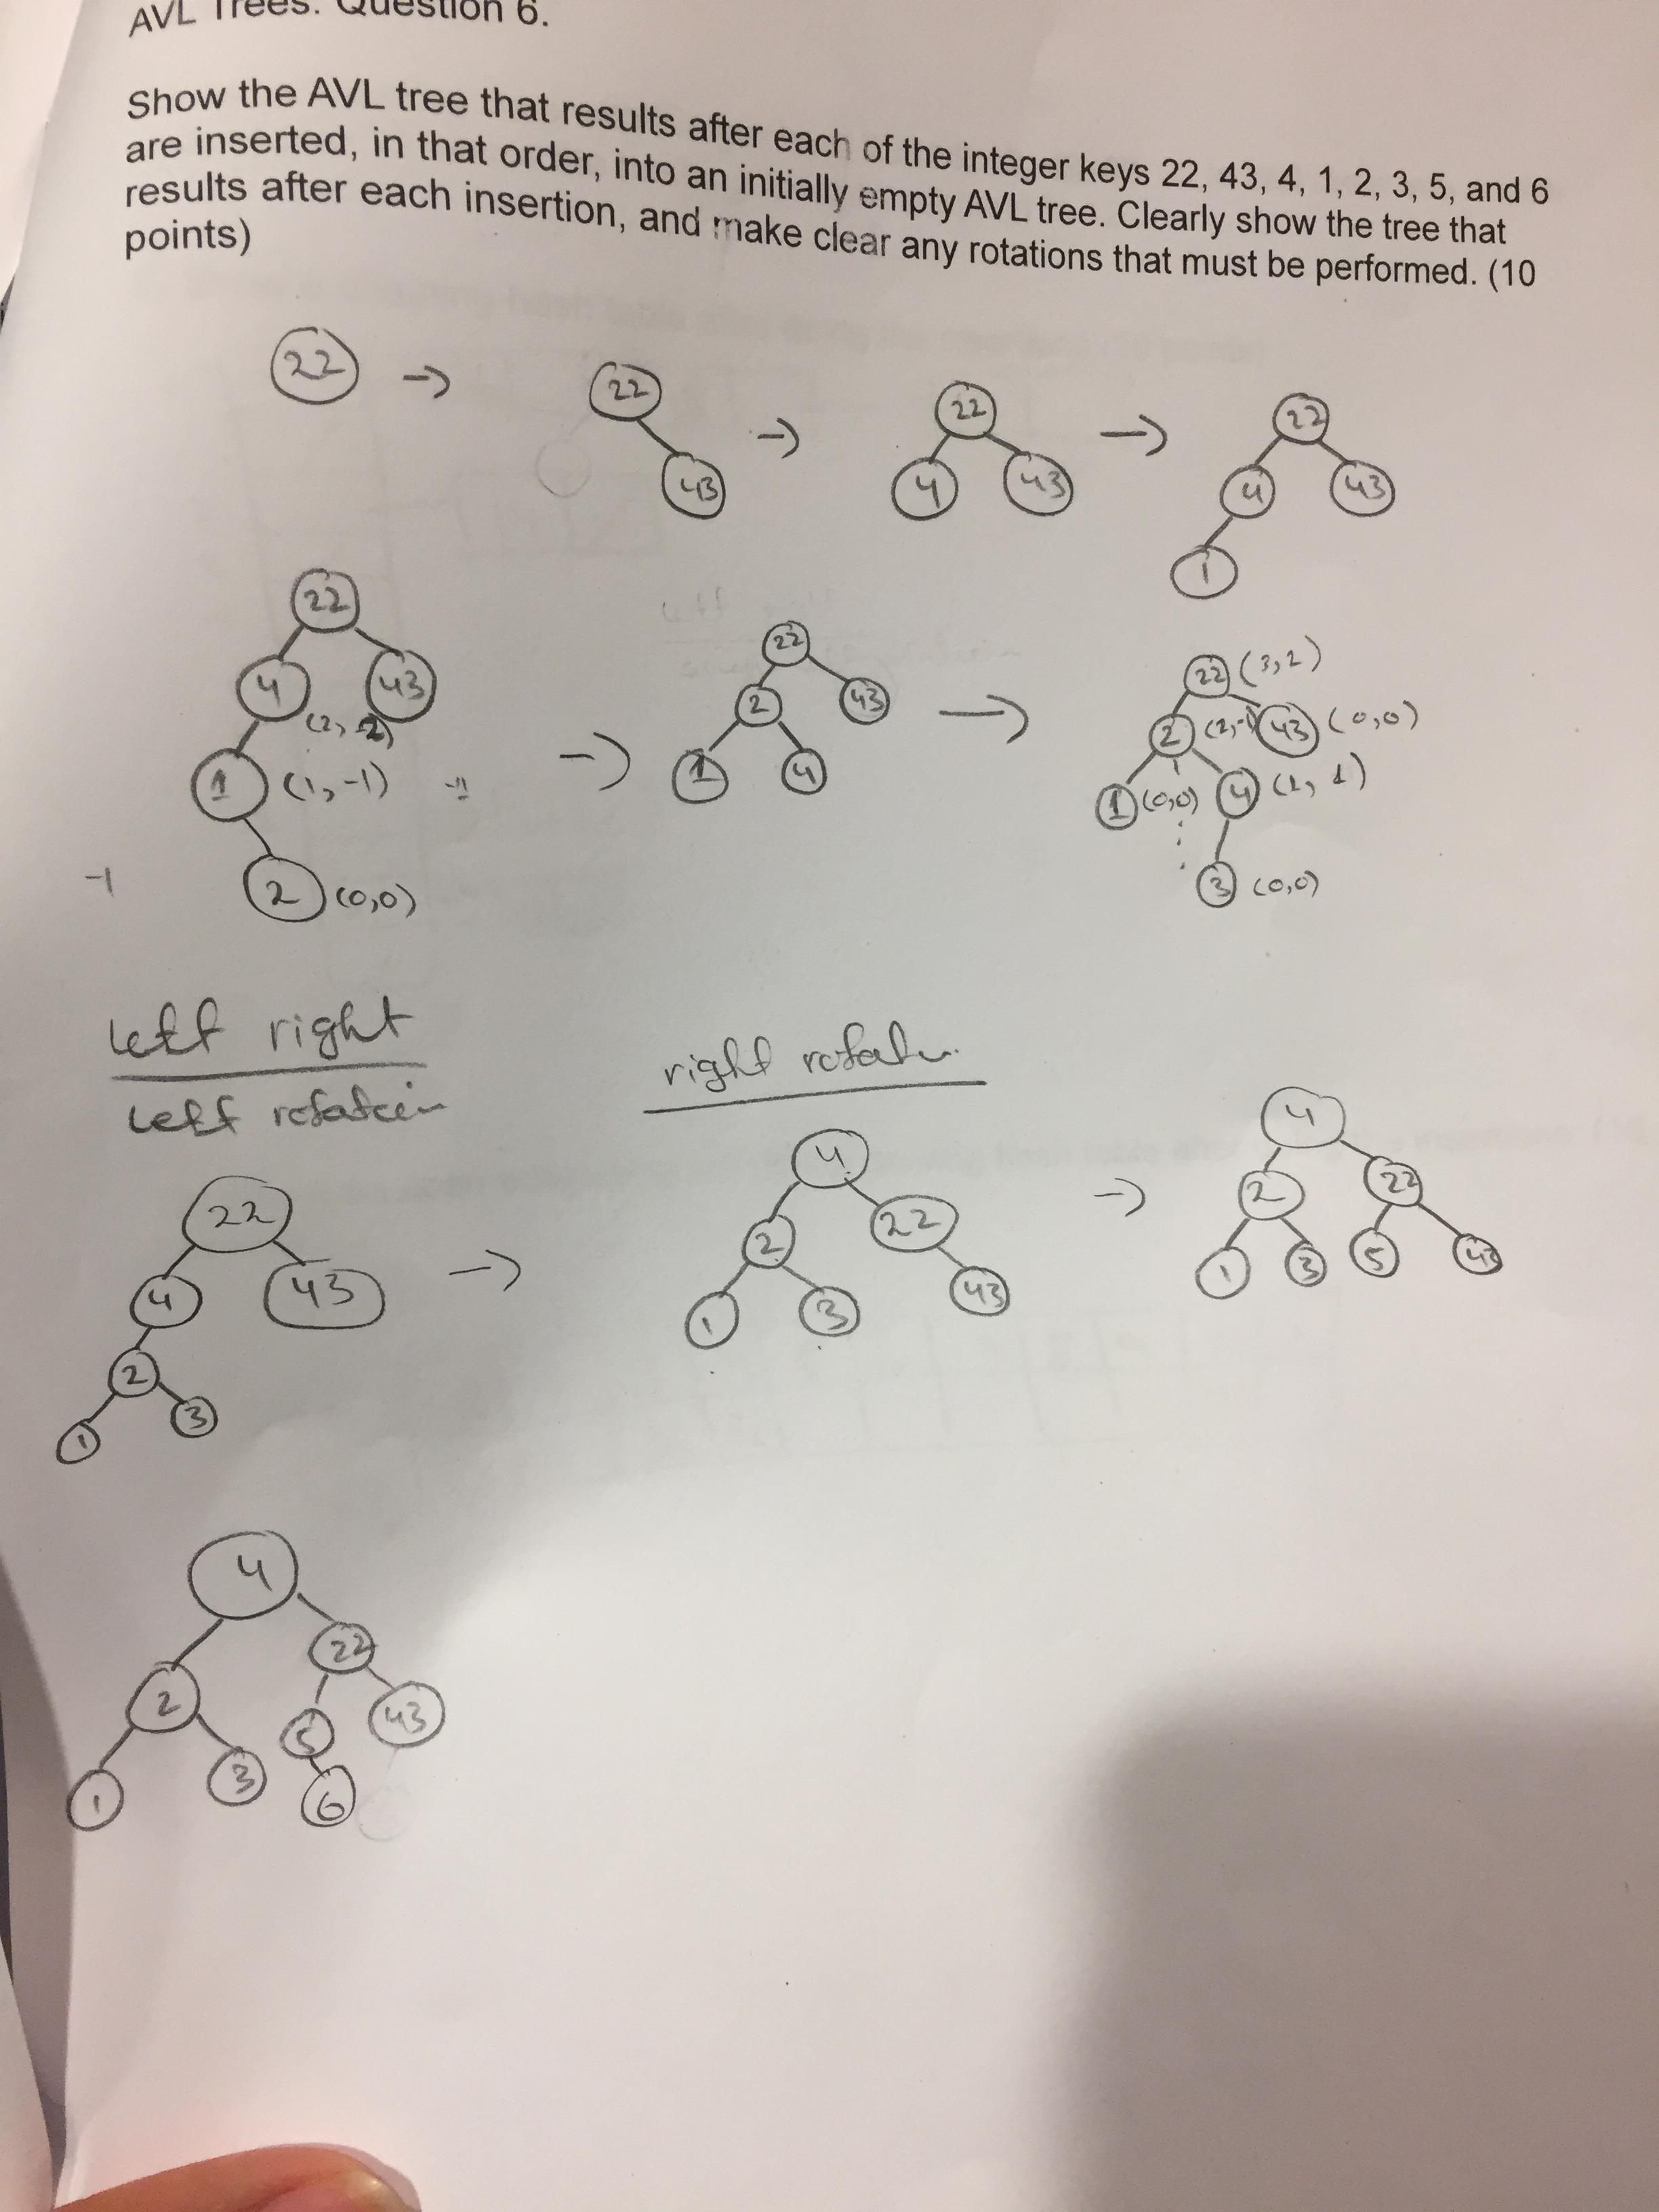 AVL Trees. Question 6.
Show the AVL tree that results after each of the integer keys 22, 43, 4, 1, 2, 3, 5, and 6
are inserted, in that order, into an initially empty AVL tree. Clearly show the tree that
results after each insertion, and make clear any rotations that must be performed. (10
points)
22 → 22 43 → 22 4 43 → 22 4 43 1
22 4 43 (2, 2) 1 (1, -1) 2 (0,0) → 22 2 43 1 4 → 22 (3,2) 2 (2,-1) 43 (0,0) 1 (0,0) 4 (1, 1) 3 (0,0)
-1
left right
left rotation
right rotation
22 4 43 2 1 3 → 4 2 22 1 3 43 → 4 2 22 1 3 5 43
4 2 22 1 3 5 43 6